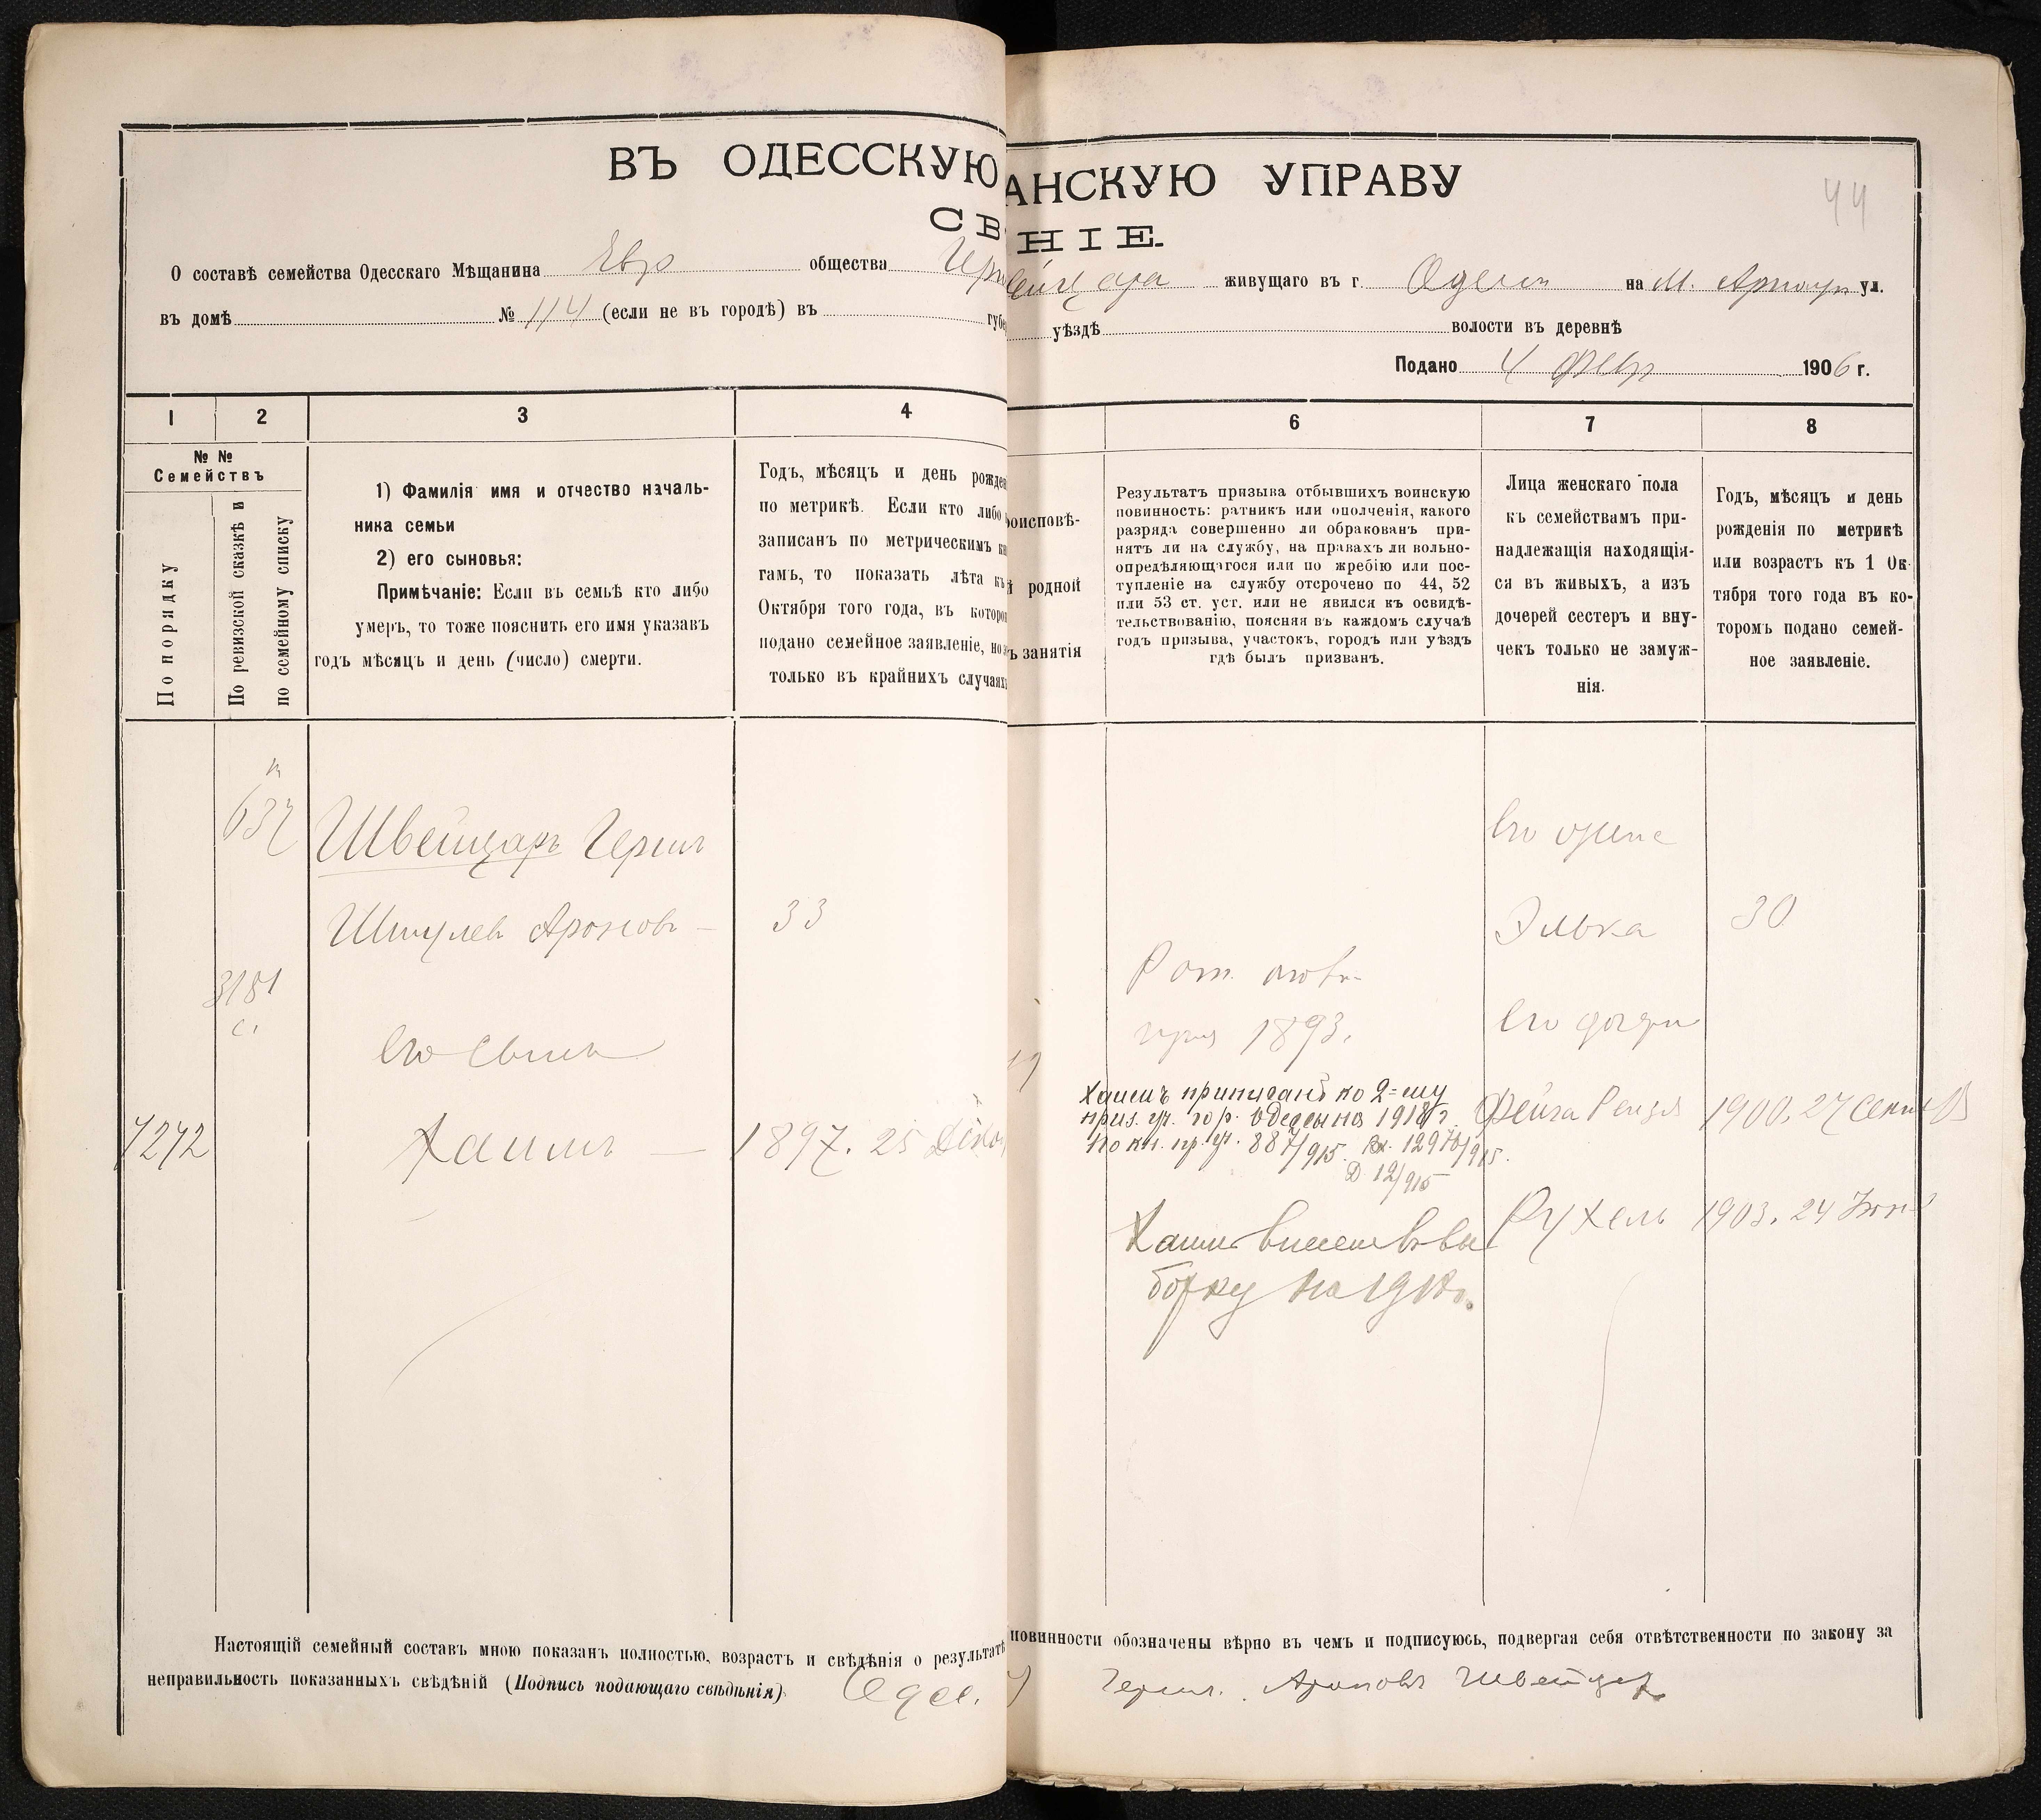 ВЪ ОДЕССКУЮ
АНСКУЮ УПРАВУ
44
СВ
НІЕ.
О составѣ семейства Одесскаго Мѣщанина Евр общества Герш
вейцара живущаго въ г. Одессѣ на М. Арнаут ул.
въ домѣ № 114 (если не въ городѣ) въ губе
уѣздѣ волости въ деревнѣ
Подано 4 Февр 1906 г.
1 2 3 4
6 7 8
№ №
Семействъ
По порядку
По ревизской сказкѣ и
по семейному списку
1) Фамилія имя и отчество началь-
ника семьи
2) его сыновья:
Примѣчаніе: Если въ семьѣ кто либо
умеръ, то тоже пояснить его имя указавъ
годъ мѣсяцъ и день (число) смерти.
Годъ, мѣсяцъ и день рожде
по метрикѣ. Если кто либо
записанъ по метрическимъ кн
гамъ, то показать лѣта къ
Октября того года, въ которо
подано семейное заявленіе, но
только въ крайнихъ случаях
роисповѣ-
й родной
ъ занятія
Результатъ призыва отбывшихъ воинскую
повинность: ратникъ или ополченія, какого
разряда совершенно ли обракованъ при-
нятъ ли на службу, на правахъ ли вольно-
опредѣляющагося или по жребію или пос-
тупленіе на службу отсрочено по 44, 52
или 53 ст. уст. или не явился къ освидѣ-
тельствованію, поясняя въ каждомъ случаѣ
годъ призыва, участокъ, городъ или уѣздъ
гдѣ былъ призванъ.
Лица женскаго пола
къ семействамъ при-
надлежащія находящія-
ся въ живыхъ, а изъ
дочерей сестеръ и вну-
чекъ только не замуж-
нія.
Годъ, мѣсяцъ и день
рожденія по метрикѣ
или возрастъ къ 1 Ок-
тября того года въ ко-
торомъ подано семей-
ное заявленіе.
632
Швейцаръ Гершъ
Шмулев Аронов — 33
3181
с.
Его сынъ
7272 Хаимъ — 1897. 25 Декаб
Рат.
1893.
Хаимъ приписанъ ко 2=му
приз. уч. гор. Одессы на 1918 г.
по кн. пр. уч. 887/915. Вх. 12976/915.
Д 12/915
Хаимъ внесенъ въ вы
борку на 1918 г.
Его жена
Элька 30
Его дочери
Фейга Рейзя 1900. 27 Сентяб
Рухель 1903. 24 Іюн
Настоящій семейный составъ мною показанъ полностью, возрастъ и свѣдѣнія о результатѣ
повинности обозначены вѣрно въ чемъ и подписуюсь, подвергая себя отвѣтственности по закону за
неправильность показанныхъ свѣдѣній (Подпись подающаго свѣдѣнія) Одес.
Герш. Ароновъ Швейцар